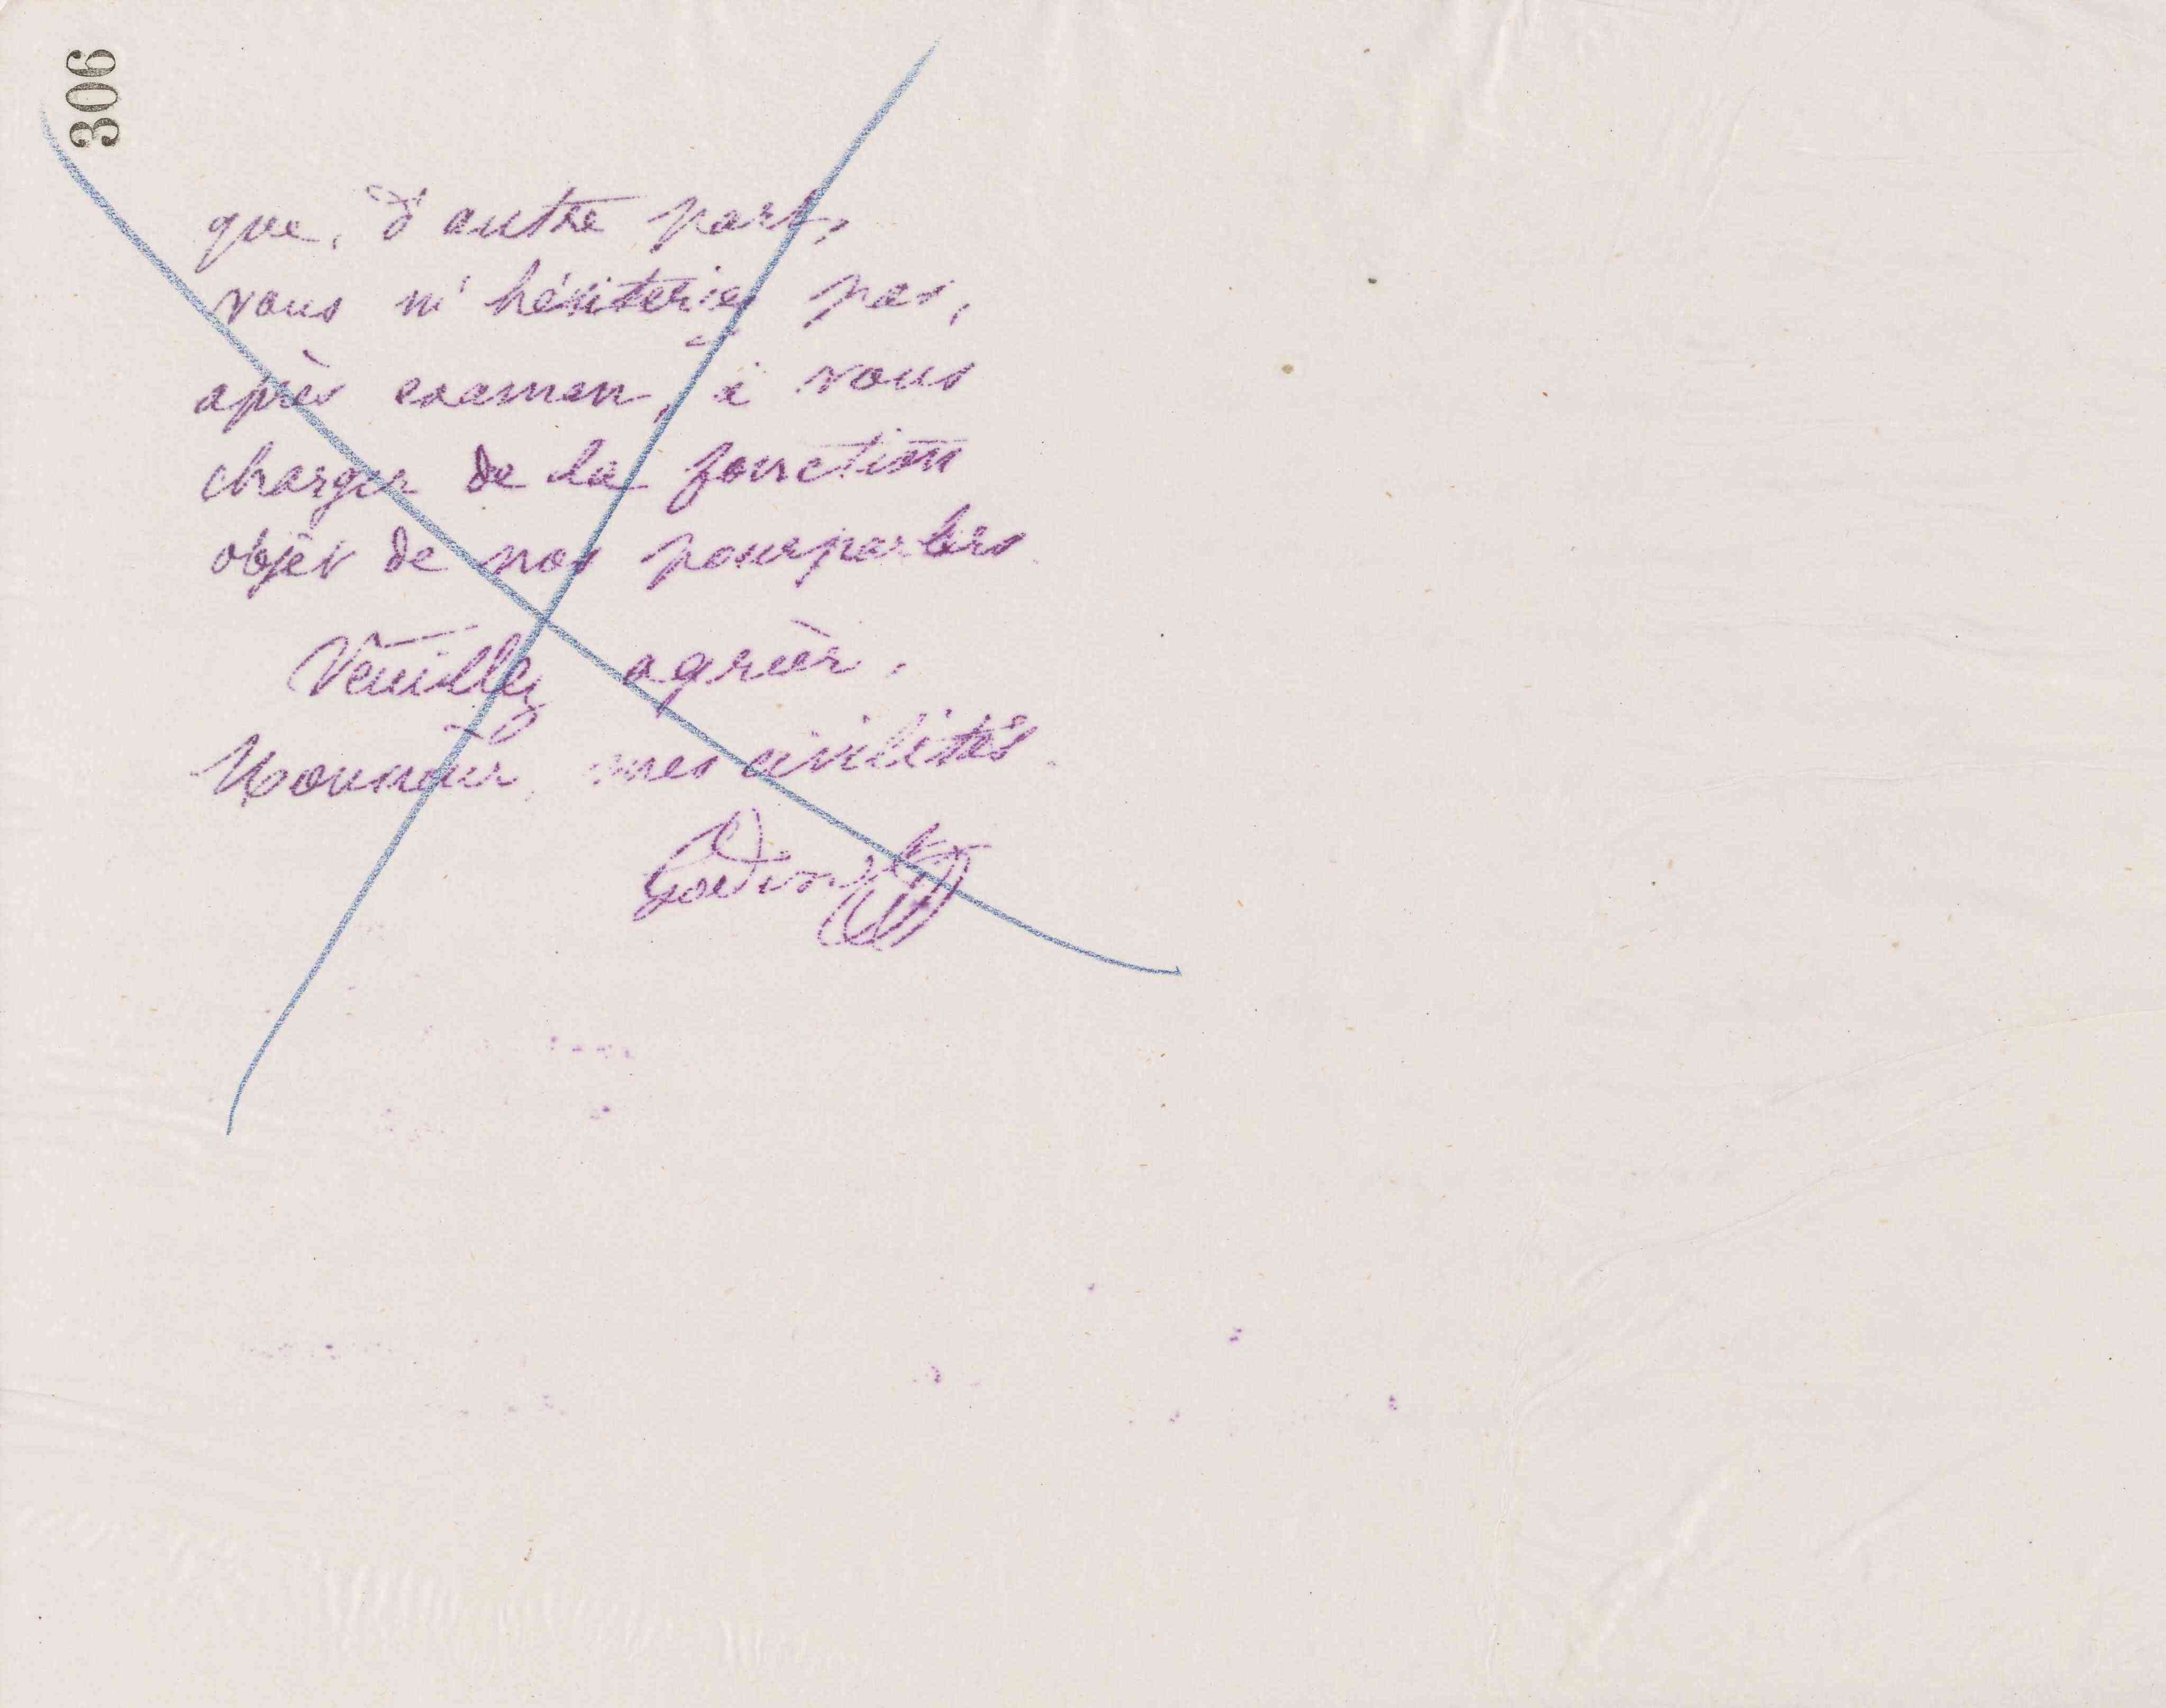 306
que, d'autre part,
vous n'hésiteriez pas,
après examen, à vous
charger de la fonction
objet de nos pourparlers.
Veuillez agréer,
Monsieur, mes civilités.
Godin